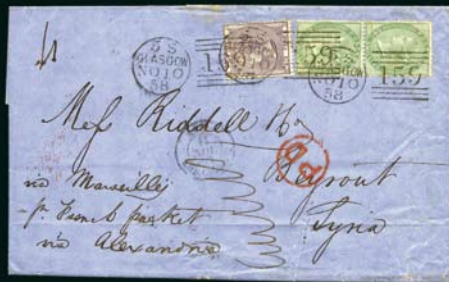 5 S
GLASGOW
NO 10
58
159
GLASGOW
NO 10
58
159
Mess Riddell & Co
PD
Beyrout
Syria
via Marseilles
pr French packet
via Alexandria